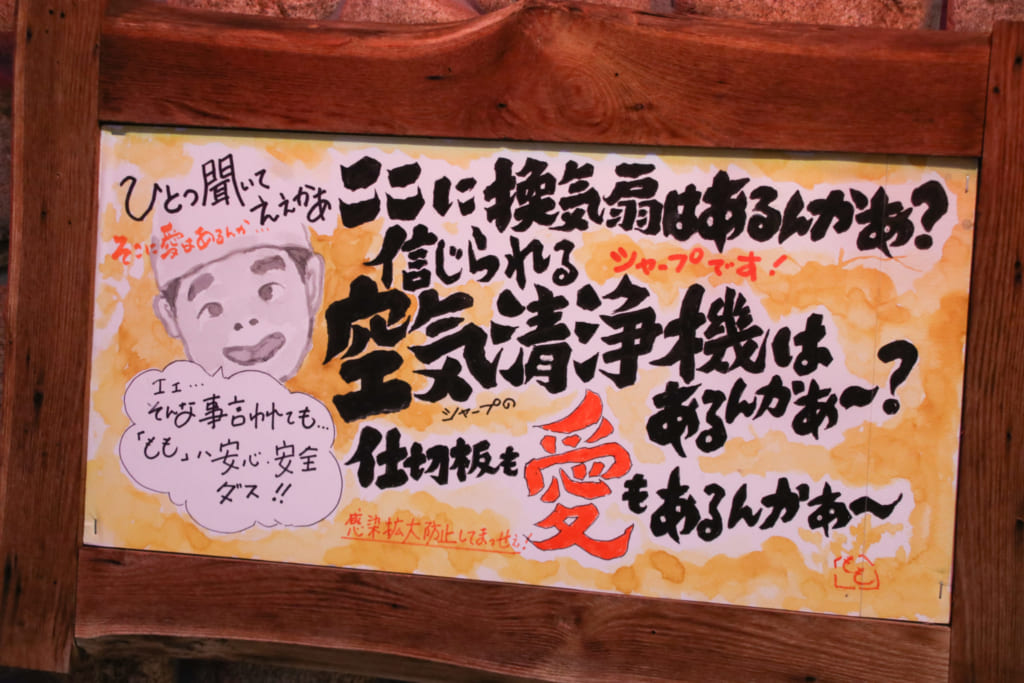 ひとつ聞いて
ええかあ
そこに愛はあるんか…
ここに換気扇はあるんかあぁ?
信じられる
シャープです!
空気清浄機は
あるんかあぁ〜?
シャープの
仕切板も
愛
もあるんかあぁ〜
感染拡大防止してまっせぇ!
エェ…
そんな事言われても…
「もも」ハ安心・安全
ダス!!
もも